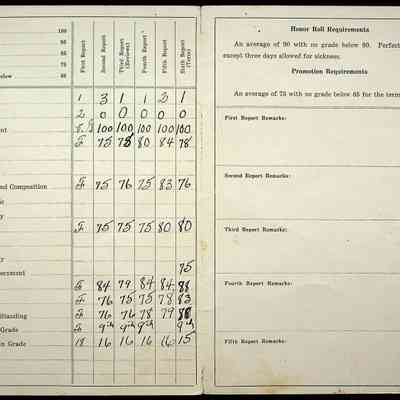 100
90
80
First Report
Second Report
Third Report (Reviews)
Fourth Report
Fifth Report
Sixth Report (Term)
below
1 3 1 1 2 1
2 0 0 0 0 0
100 100 100 100 100
75 75 80 84 78
and Composition 75 76 75 83 76
75 75 75 80 80
75
84 79 84 84 88
76 75 75 78 83
76 76 78 79
Grade 9th 9th 9th 9th
in Grade 18 16 16 16 16 15
Honor Roll Requirements
An average of 90 with no grade below 80. Perfect
except three days allowed for sickness.
Promotion Requirements
An average of 75 with no grade below 65 for the term
First Report Remarks:
Second Report Remarks:
Third Report Remarks:
Fourth Report Remarks:
Fifth Report Remarks: